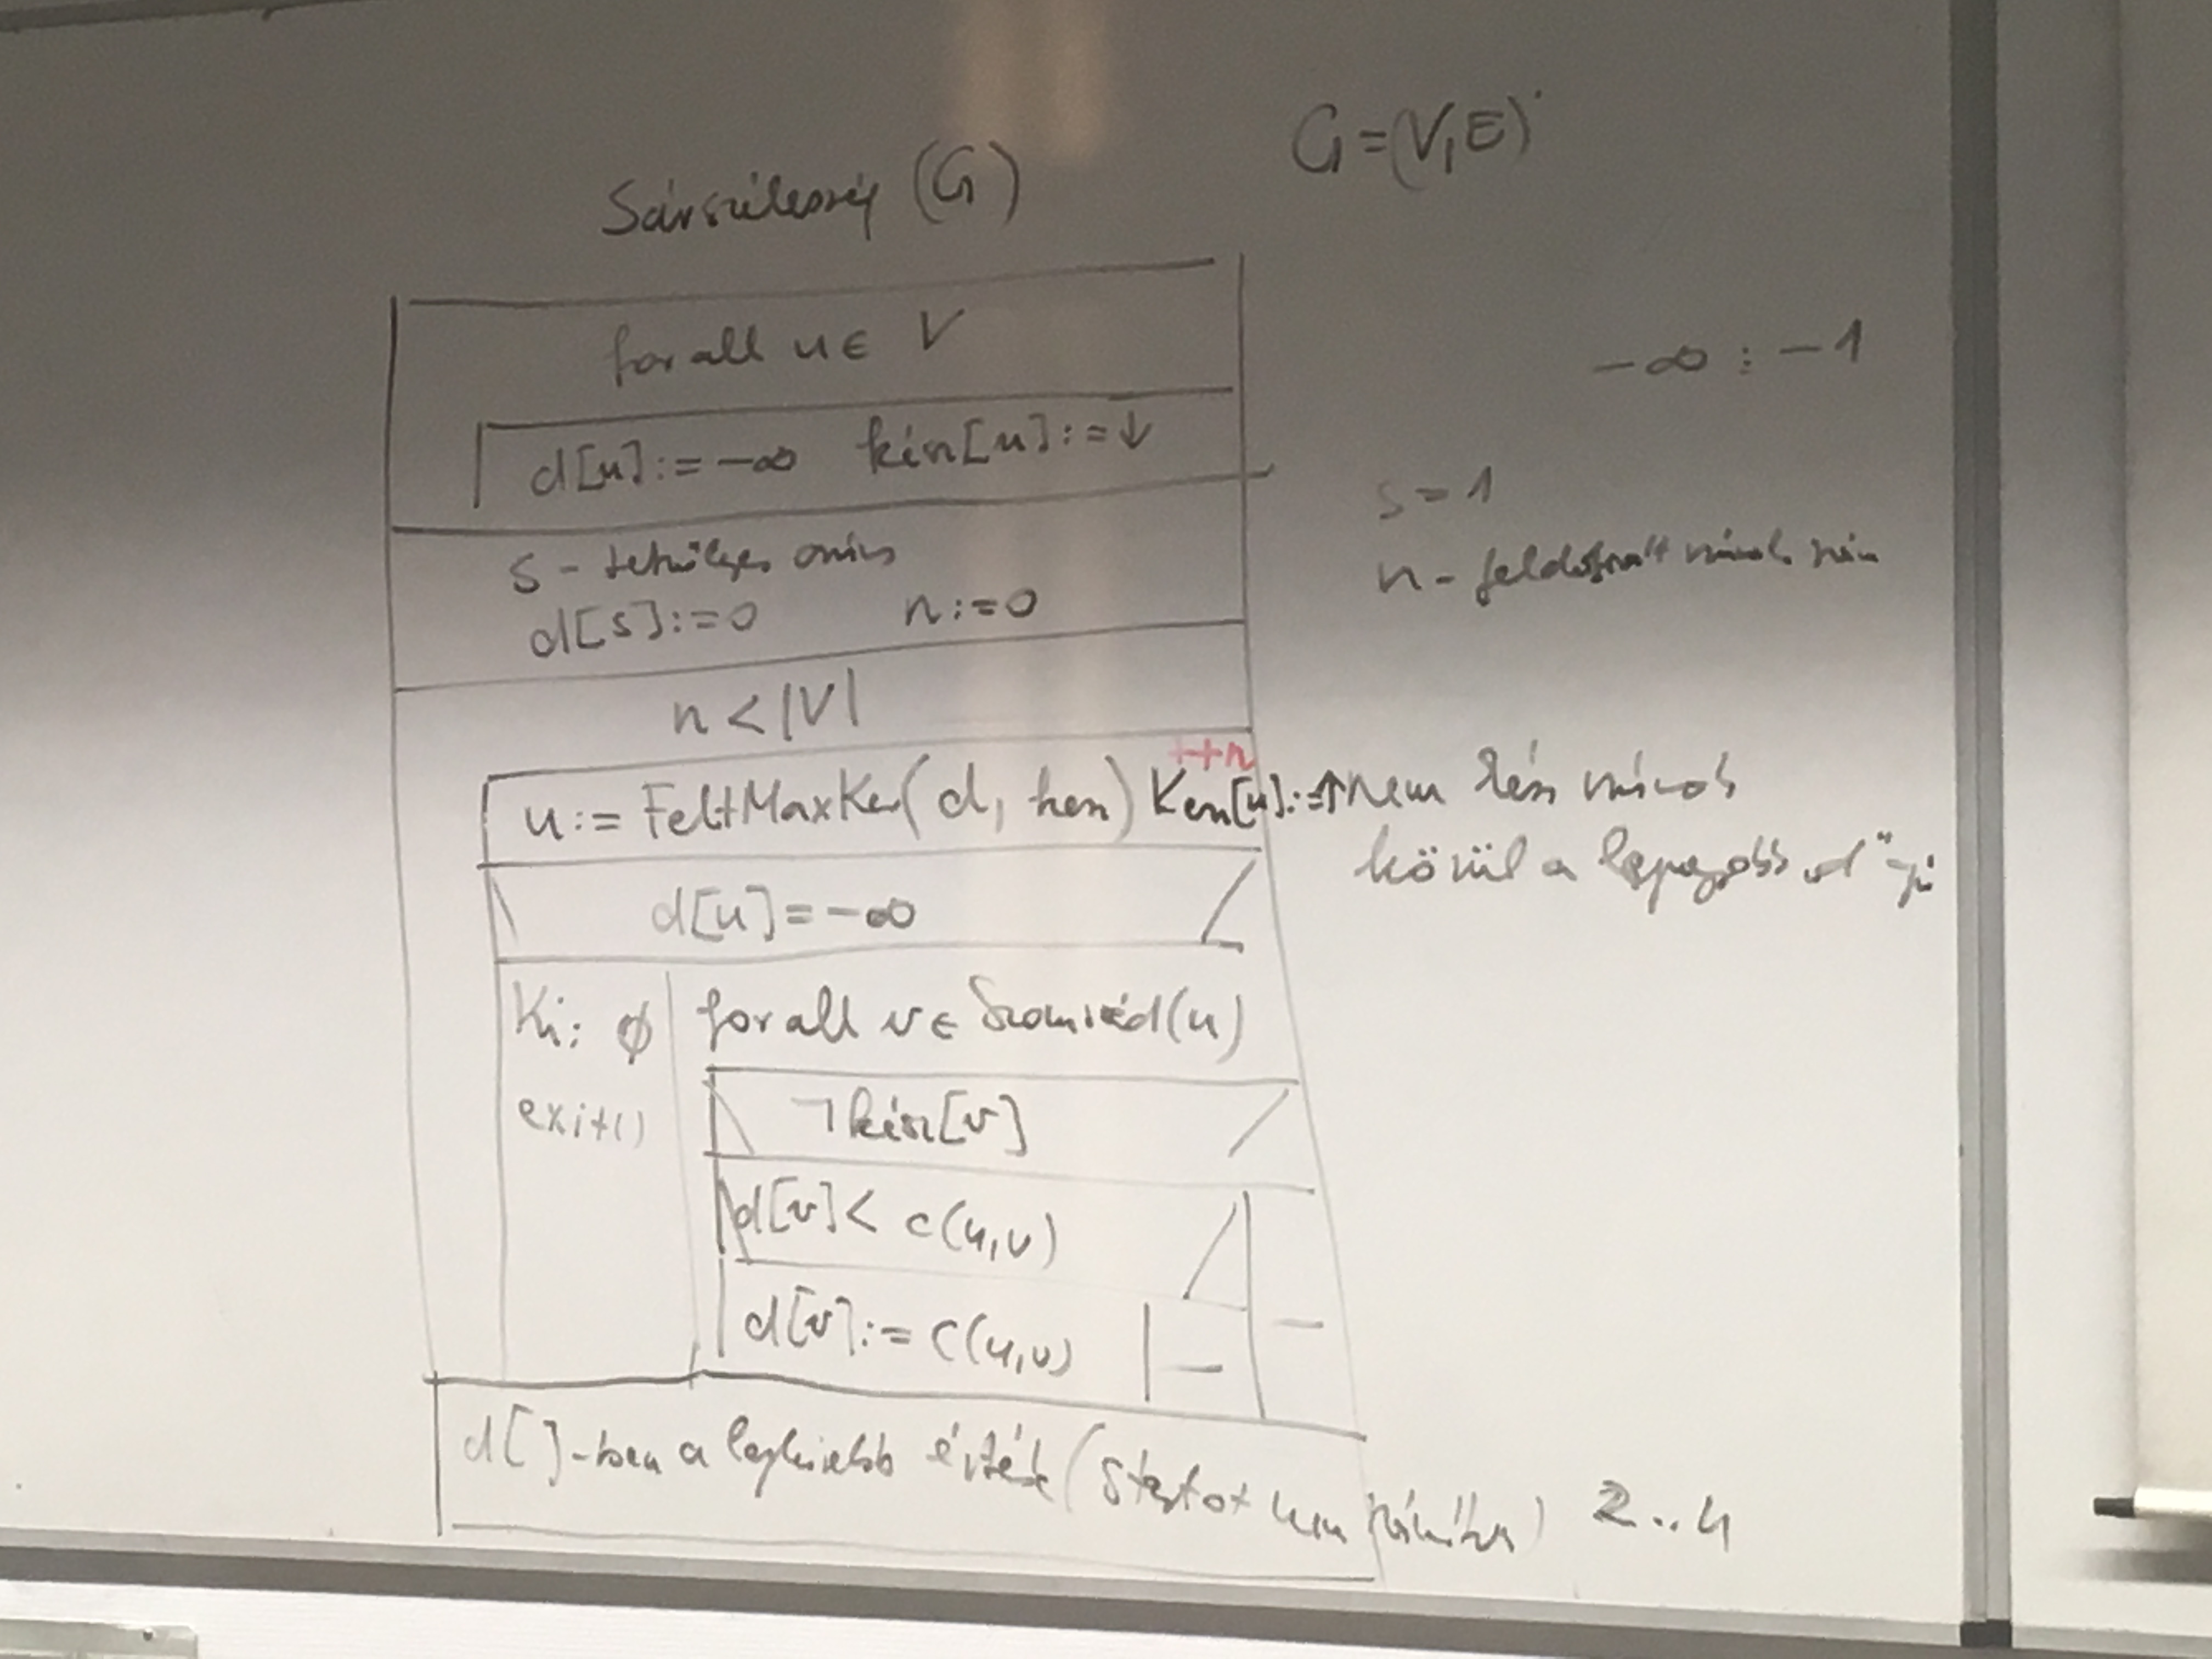 Sávszélesség (G)
G=(V,E)
for all u ∈ V
-∞ : -1
d[u]:=-∞ kész[u]:=↓
s - tetszőleges csúcs
s = 1
d[s]:=0 n:=0
n - feldolgozott városok szám
n < |V|
++n
u:= FeltMaxKer(d, kesz) Kesz[u]:=↑ nem kész városok
közül a legnagyobb "d"-jű
d[u]=-∞
Ki: ∅ for all v ∈ Szomszéd(u)
exit() ¬kész[v]
d[v] < c(u,v)
d[v]:= c(u,v) - -
d[]-ben a legkisebb érték (Startot nem számítva) 2..n